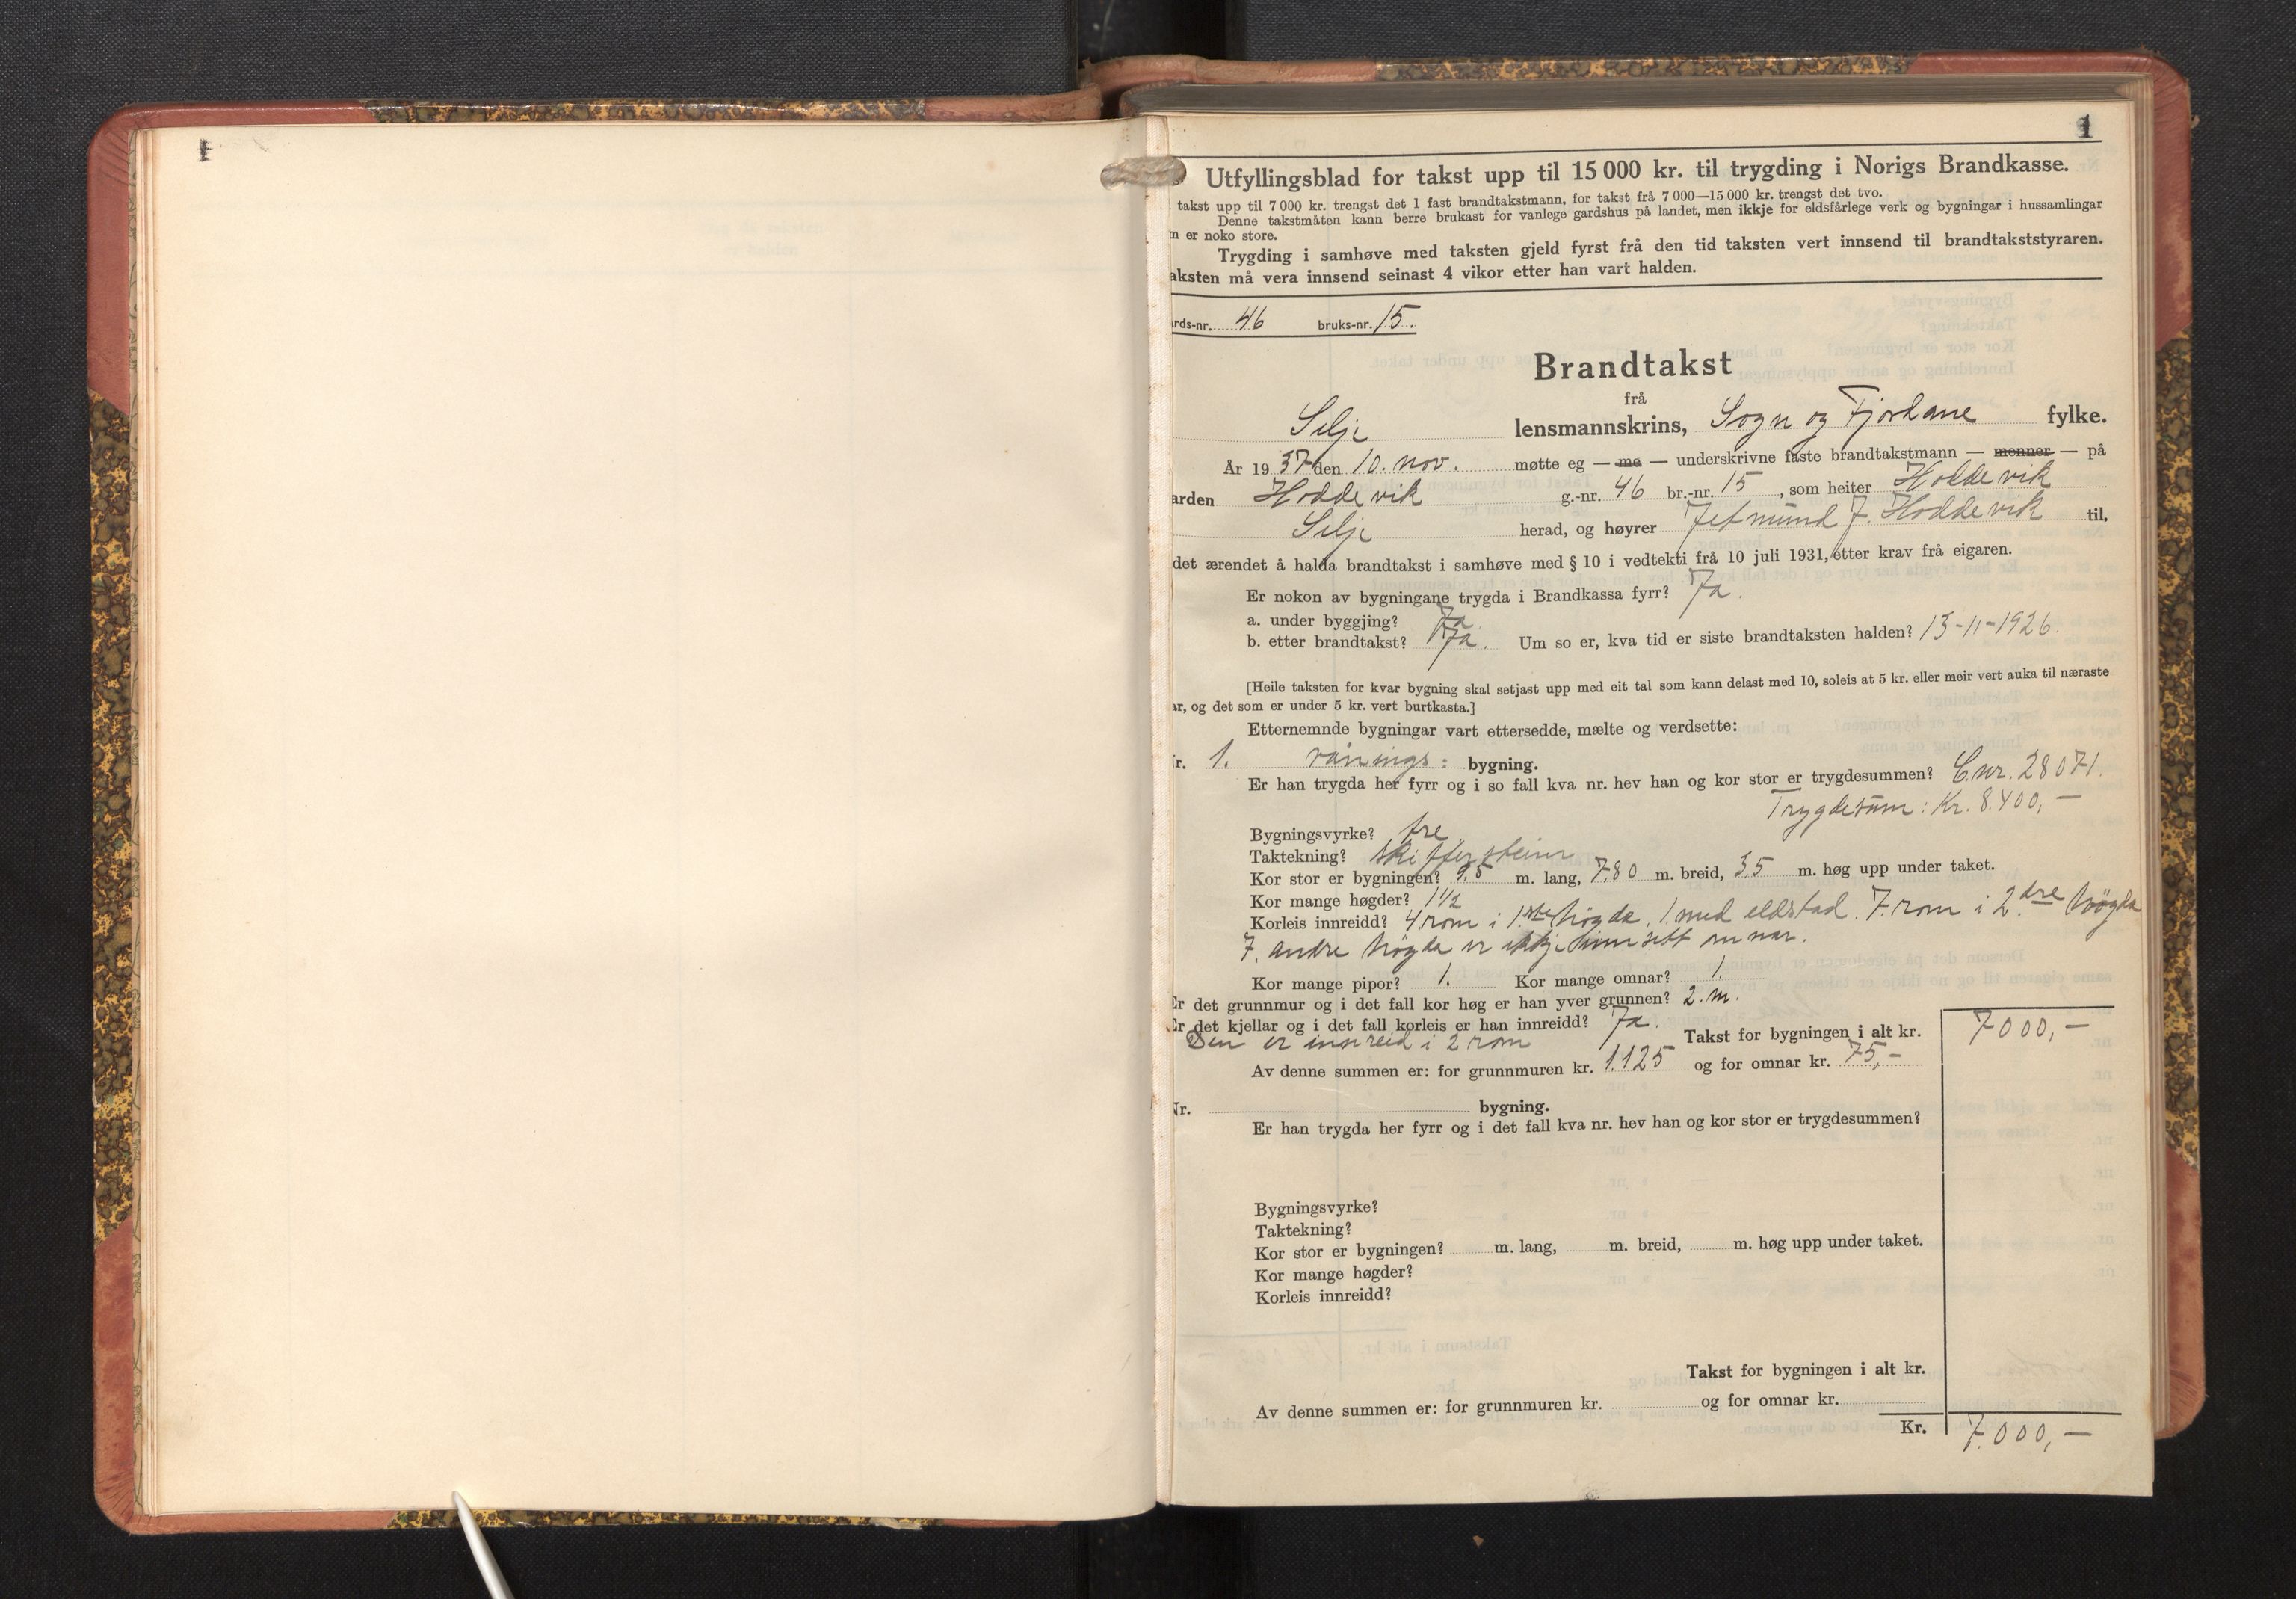 1
1
Utfyllingsblad for takst upp til 15 000 kr. til trygding i Norigs Brandkasse.
takst upp til 7 000 kr. trengst det 1 fast brandtakstmann, for takst frå 7 000—15 000 kr. trengst det tvo.
Denne takstmåten kann berre brukast for vanlege gardshus på landet, men ikkje for eldsfårlege verk og bygningar i hussamlingar
m er noko store.
Trygding i samhøve med taksten gjeld fyrst frå den tid taksten vert innsend til brandtakststyraren.
aksten må vera innsend seinast 4 vikor etter han vart halden.
rds-nr. 46 bruks-nr. 15.
Brandtakst
frå
Selje lensmannskrins, Sogn og Fjordane fylke.
År 1937 den 10. nov. møtte eg — me — underskrivne faste brandtakstmann — menner — på
arden Hoddevik g.-nr. 46 br.-nr. 15, som heiter Hoddevik
Selje herad, og høyrer Jetmund J. Hoddevik til,
det ærendet å halda brandtakst i samhøve med § 10 i vedtekti frå 10 juli 1931, etter krav frå eigaren.
Er nokon av bygningane trygda i Brandkassa fyrr? Ja.
a. under byggjing? Ja
b. etter brandtakst? Ja. Um so er, kva tid er siste brandtaksten halden? 13-11-1926.
[Heile taksten for kvar bygning skal setjast upp med eit tal som kann delast med 10, soleis at 5 kr. eller meir vert auka til næraste
ar, og det som er under 5 kr. vert burtkasta.]
Etternemnde bygningar vart ettersedde, mælte og verdsette:
r. 1. vånings= bygning.
Er han trygda her fyrr og i so fall kva nr. hev han og kor stor er trygdesummen? C. nr. 28071.
Trygdesum: Kr. 8.400,—
Bygningsvyrke? tre
Taktekning? skifferstein
Kor stor er bygningen? 9.5 m. lang, 7.80 m. breid, 3,5 m. høg upp under taket.
Kor mange høgder? 1 1/2
Korleis innreidd? 4 rom i 1.ste høgda, 1 med eldstad. 7. rom i 2.dre høgda
7. andre høgda er ikkje innsett omnar.
Kor mange pipor? 1. Kor mange omnar? 1.
Er det grunnmur og i det fall kor høg er han yver grunnen? 2. m.
Er det kjellar og i det fall korleis er han innreidd? Ja.
Den er innreid i 2 rom Takst for bygningen i alt kr. 7000,—
Av denne summen er: for grunnmuren kr. 1.125 og for omnar kr. 75,—
Nr. bygning.
Er han trygda her fyrr og i det fall kva nr. hev han og kor stor er trygdesummen?
Bygningsvyrke?
Taktekning?
Kor stor er bygningen? m. lang, m. breid, m. høg upp under taket.
Kor mange høgder?
Korleis innreidd?
Takst for bygningen i alt kr.
Av denne summen er: for grunnmuren kr. og for omnar kr.
Kr. 7.000,—